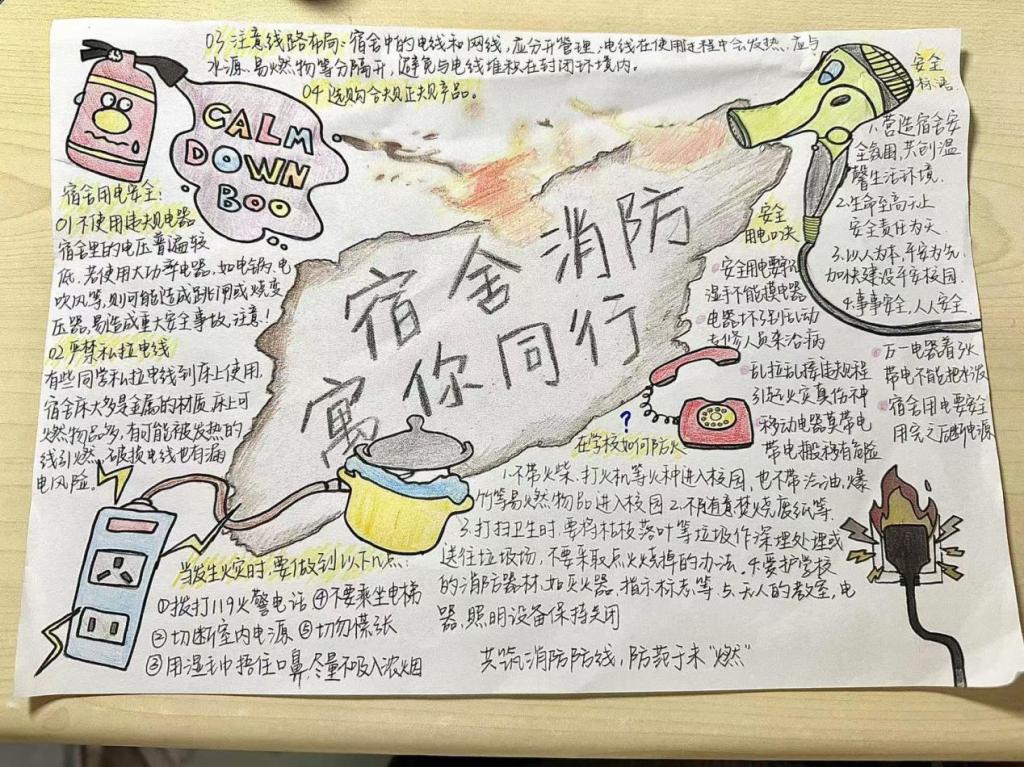 宿舍消防
寓你同行
CALM
DOWN
BOO
03 注意线路布局：宿舍中的电线和网线，应分开管理，电线在使用过程中会发热，应与
水源、易燃物等分隔开，避免与电线堆积在封闭环境内。
04 选购合规正规产品。
宿舍用电安全：
01 不使用违规电器
宿舍里的电压普遍较
低，若使用大功率电器，如电锅、电
吹风等，则可能造成跳闸或烧变
压器，易造成重大安全事故，注意！
02 严禁私拉电线
有些同学私拉电线到床上使用，
宿舍床大多是金属的材质，床上可
燃物品多，有可能被发热的
线引燃，破损电线也有漏
电风险。
安全
标语：
1.营造宿舍安
全氛围，共创温
馨生活环境.
2.生命至高无上
安全责任为天
3.以人为本，平安为先，
加快建设平安校园.
4.事事安全，人人安全
安全
用电口诀
安全用电要牢记
湿手不能摸电器
电器坏了别乱动
去修人员来治病
乱拉乱接违规程
引起火灾真伤神
移动电器莫带电
带电搬移有危险
万一电器着了火
带电不能把水泼
宿舍用电要安全
用完之后断电源
?
在学校如何防火
1.不带火柴、打火机等火种进入校园，也不带汽油、爆
竹等易燃物品进入校园 2.不随意焚烧废纸等.
3.打扫卫生时，要将枯枝落叶等垃圾作深埋处理或
送往垃圾场，不要采取点火烧掉的办法。4.要护学校
的消防器材，如灭火器、指示标志等. 5.无人的教室，电
器、照明设备保持关闭
当发生火灾时，要做到以下几点：
①拨打119火警电话 ④不要乘坐电梯
②切断室内电源 ⑤切勿慌张
③用湿毛巾捂住口鼻，尽量不吸入浓烟
共筑消防防线，防范于未“燃”